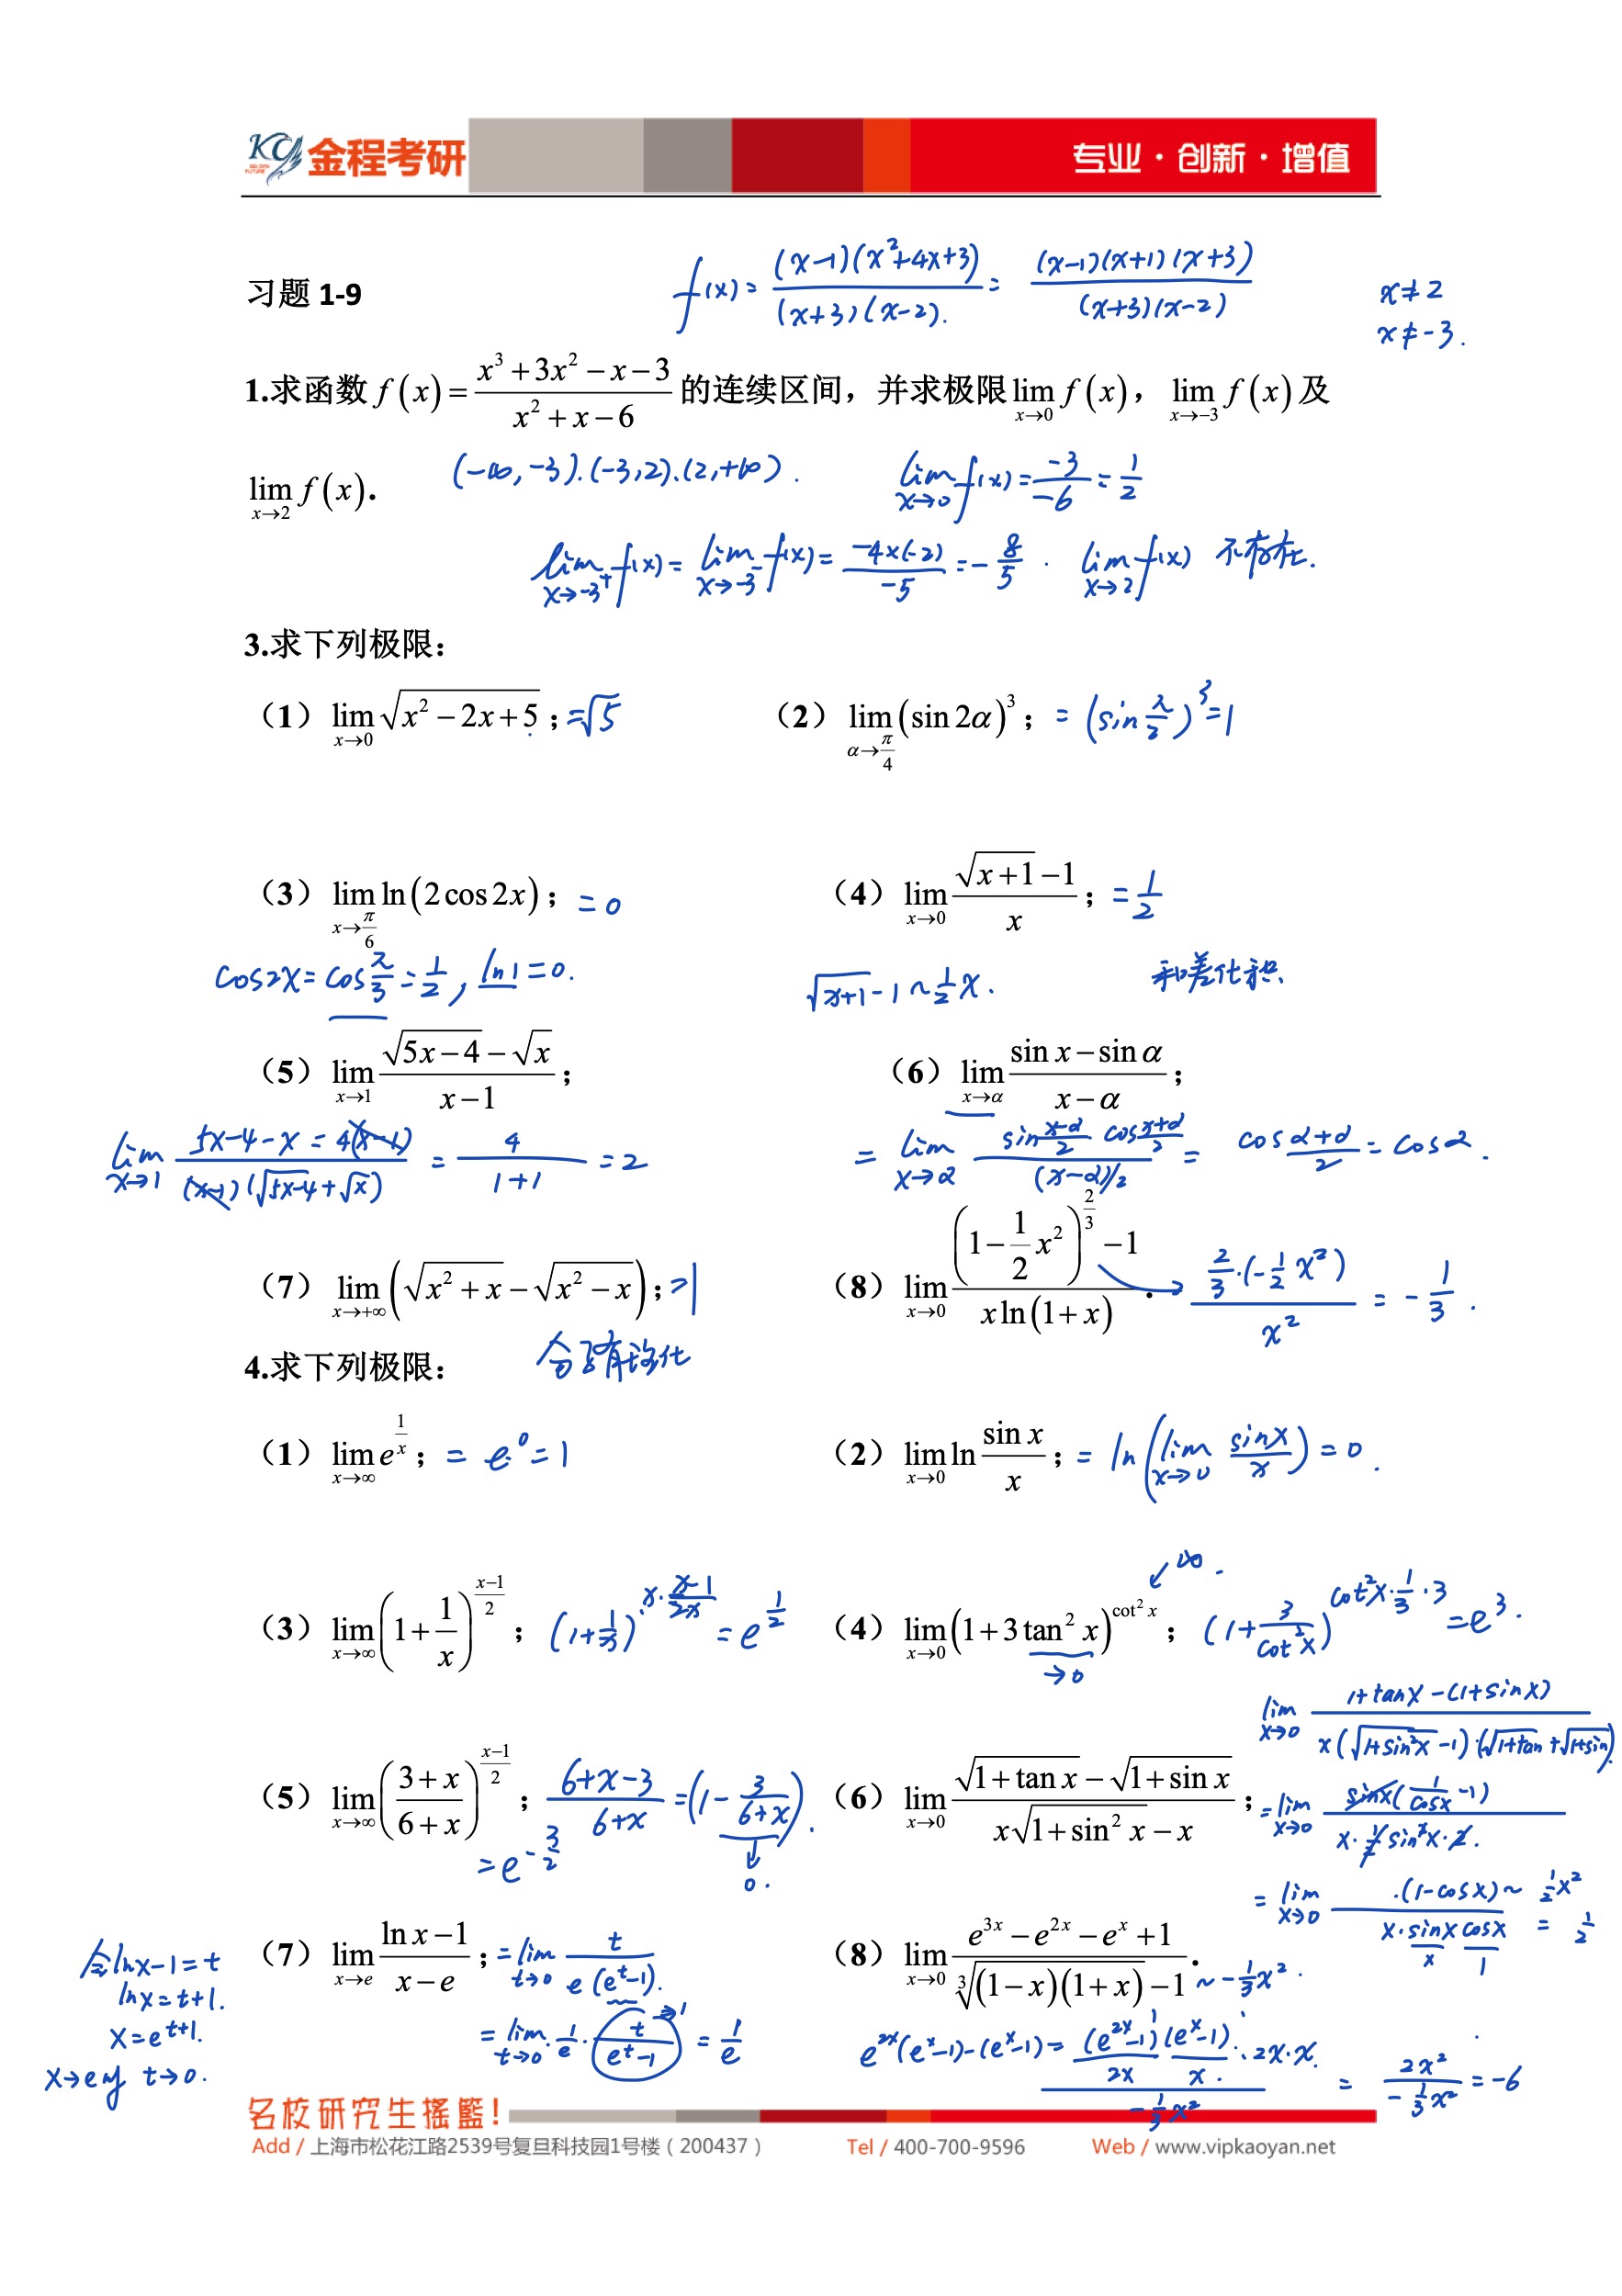 KCY GOLDEN FUTURE 金程考研 专业·创新·增值
f(x) = \frac{(x-1)(x^2+4x+3)}{(x+3)(x-2).} = \frac{(x-1)(x+1)(x+3)}{(x+3)(x-2)}
x≠2
x≠-3.
习题 1-9
1.求函数 f(x) = \frac{x^3+3x^2-x-3}{x^2+x-6} 的连续区间，并求极限 \lim_{x→0} f(x)，\lim_{x→-3} f(x) 及
\lim_{x→2} f(x).
(-∞,-3).(-3,2).(2,+∞).
\lim_{x→0} f(x) = \frac{-3}{-6} = \frac{1}{2}
\lim_{x→-3^+} f(x) = \lim_{x→-3^-} f(x) = \frac{-4×(-2)}{-5} = -\frac{8}{5} . \lim_{x→2} f(x) 不存在.
3.求下列极限：
（1）\lim_{x→0} \sqrt{x^2-2x+5}； =√5
（2）\lim_{α→\frac{π}{4}} (\sin 2α)^3； = (sin\frac{π}{2})^3 = 1
（3）\lim_{x→\frac{π}{6}} \ln(2\cos 2x)； = 0
cos2x = cos\frac{π}{3} = \frac{1}{2}, ln1 = 0.
（4）\lim_{x→0} \frac{\sqrt{x+1}-1}{x}； = \frac{1}{2}
\sqrt{x+1}-1 ~ \frac{1}{2}x.
和差化积.
（5）\lim_{x→1} \frac{\sqrt{5x-4}-\sqrt{x}}{x-1}；
\lim_{x→1} \frac{5x-4-x = 4(x-1)}{(x-1)(\sqrt{5x-4}+\sqrt{x})} = \frac{4}{1+1} = 2
（6）\lim_{x→α} \frac{\sin x-\sin α}{x-α}；
= \lim_{x→α} \frac{sin\frac{x-α}{2} cos\frac{x+α}{2}}{(x-α)/2} = cos\frac{α+α}{2} = cosα.
（7）\lim_{x→+∞} (\sqrt{x^2+x}-\sqrt{x^2-x})； =1
分子有理化
（8）\lim_{x→0} \frac{(1-\frac{1}{2}x^2)^{\frac{2}{3}}-1}{x\ln(1+x)}. → \frac{\frac{2}{3}·(-\frac{1}{2}x^2)}{x^2} = -\frac{1}{3}.
4.求下列极限：
（1）\lim_{x→∞} e^{\frac{1}{x}}； = e^0 = 1
（2）\lim_{x→0} \ln\frac{\sin x}{x}； = ln(\lim_{x→0} \frac{sinx}{x}) = 0.
（3）\lim_{x→∞} (1+\frac{1}{x})^{\frac{x-1}{2}}； (1+\frac{1}{x})^{x·\frac{x-1}{2x}} = e^{\frac{1}{2}}
（4）\lim_{x→0} (1+3\tan^2 x)^{\cot^2 x}； (1+\frac{3}{cot^2x})^{cot^2x·\frac{1}{3}·3} = e^3.
↙∞.
→0
（5）\lim_{x→∞} (\frac{3+x}{6+x})^{\frac{x-1}{2}}； \frac{6+x-3}{6+x} = (1-\frac{3}{6+x}).
↓
0.
= e^{-\frac{3}{2}}
（6）\lim_{x→0} \frac{\sqrt{1+\tan x}-\sqrt{1+\sin x}}{x\sqrt{1+\sin^2 x}-x}；
\lim_{x→0} \frac{1+tanx-(1+sinx)}{x(\sqrt{1+sin^2x}-1)·(\sqrt{1+tan}+\sqrt{1+sin})}
= \lim_{x→0} \frac{sinx(\frac{1}{cosx}-1)}{x·\frac{1}{2}sin^2x·2.}
= \lim_{x→0} \frac{(1-cosx) ~ \frac{1}{2}x^2}{x·sinx cosx} = \frac{1}{2}
x 1
（7）\lim_{x→e} \frac{\ln x-1}{x-e}； = \lim_{t→0} \frac{t}{e(e^t-1).}
= \lim_{t→0} \frac{1}{e}·\frac{t}{e^t-1} →1 = \frac{1}{e}
令lnx-1=t
lnx=t+1.
x=e^{t+1}.
x→e时 t→0.
（8）\lim_{x→0} \frac{e^{3x}-e^{2x}-e^x+1}{\sqrt[3]{(1-x)(1+x)}-1}. ~ -\frac{1}{3}x^2.
e^{2x}(e^x-1)-(e^x-1) = \frac{\frac{(e^{2x}-1)}{2x}\frac{(e^x-1)}{x}·2x·x.}{-\frac{1}{3}x^2} = \frac{2x^2}{-\frac{1}{3}x^2} = -6
名校研究生摇篮!
Add / 上海市松花江路2539号复旦科技园1号楼（200437） Tel / 400-700-9596 Web / www.vipkaoyan.net